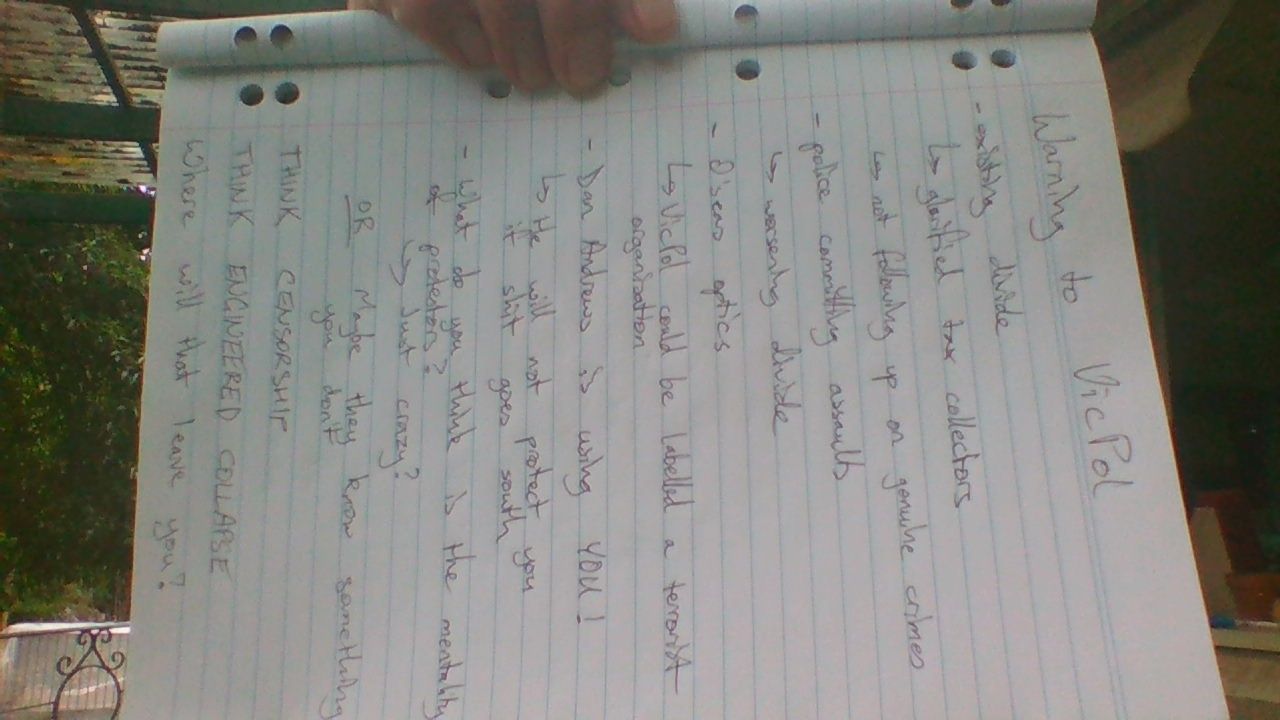 Warning to VicPol
- existing divide
↳ glorified tax collectors
↳ not following up on genuine crimes
- police committing assaults
↳ worsening divide
- Optics
↳ VicPol could be labelled a terrorist
organization
- Dan Andrews is using YOU!
↳ He will not protect you
if shit goes south
- What do you think is the mentality
of protestors?
↳ Just crazy?
OR Maybe they know something
you don't
THINK CENSORSHIP
THINK ENGINEERED COLLAPSE
Where will that leave you?